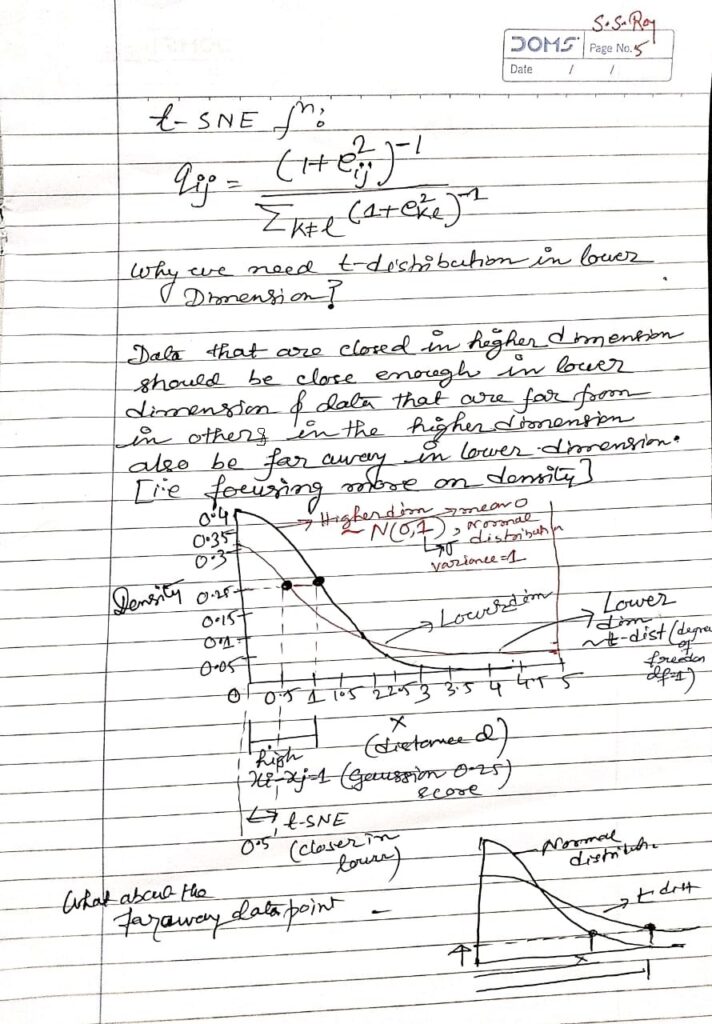 S.S. Roy
DOMS Page No. 5
Date / /
t-SNE fⁿ:
qij = (1+e²ij)⁻¹ / Σk≠l (1+e²kl)⁻¹
Why we need t-distribution in lower
Dimension?
Data that are closed in higher dimension
should be close enough in lower
dimension & data that are far from
in others in the higher dimension
also be far away in lower dimension.
[i.e focusing more on density]
0.4
0.35
0.3
Density 0.25
0.15
0.1
0.05
Higher dim → mean 0
~ N(0,1), Normal distribution
σ
variance=1
Lower dim
Lower
dim
~ t-dist (degree
of
freedom
df=1)
0 0.5 1 1.5 2 2.5 3 3.5 4 4.5 5
x
(distance d)
high
xi-xj=1 (Gaussion 0.25)
score
t-SNE
0.5 (closer in
lower)
What about the
faraway data point -
Normal
distributn
t dist
x